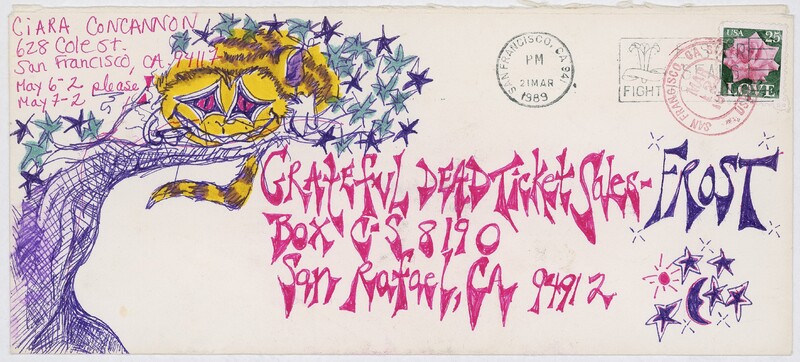 CiARA CONCANNON
628 Cole St.
San Francisco, CA 94117
May 6-2 please
May 7-2
SAN FRANCISCO, CA 941
PM
21 MAR
1989
FIGHT
USA 25
LOVE
SAN FRANCISCO, CA
GRATEFUL DEAD Ticket Sales-FROST
BOX C-S 8190
San Rafael, CA 94912